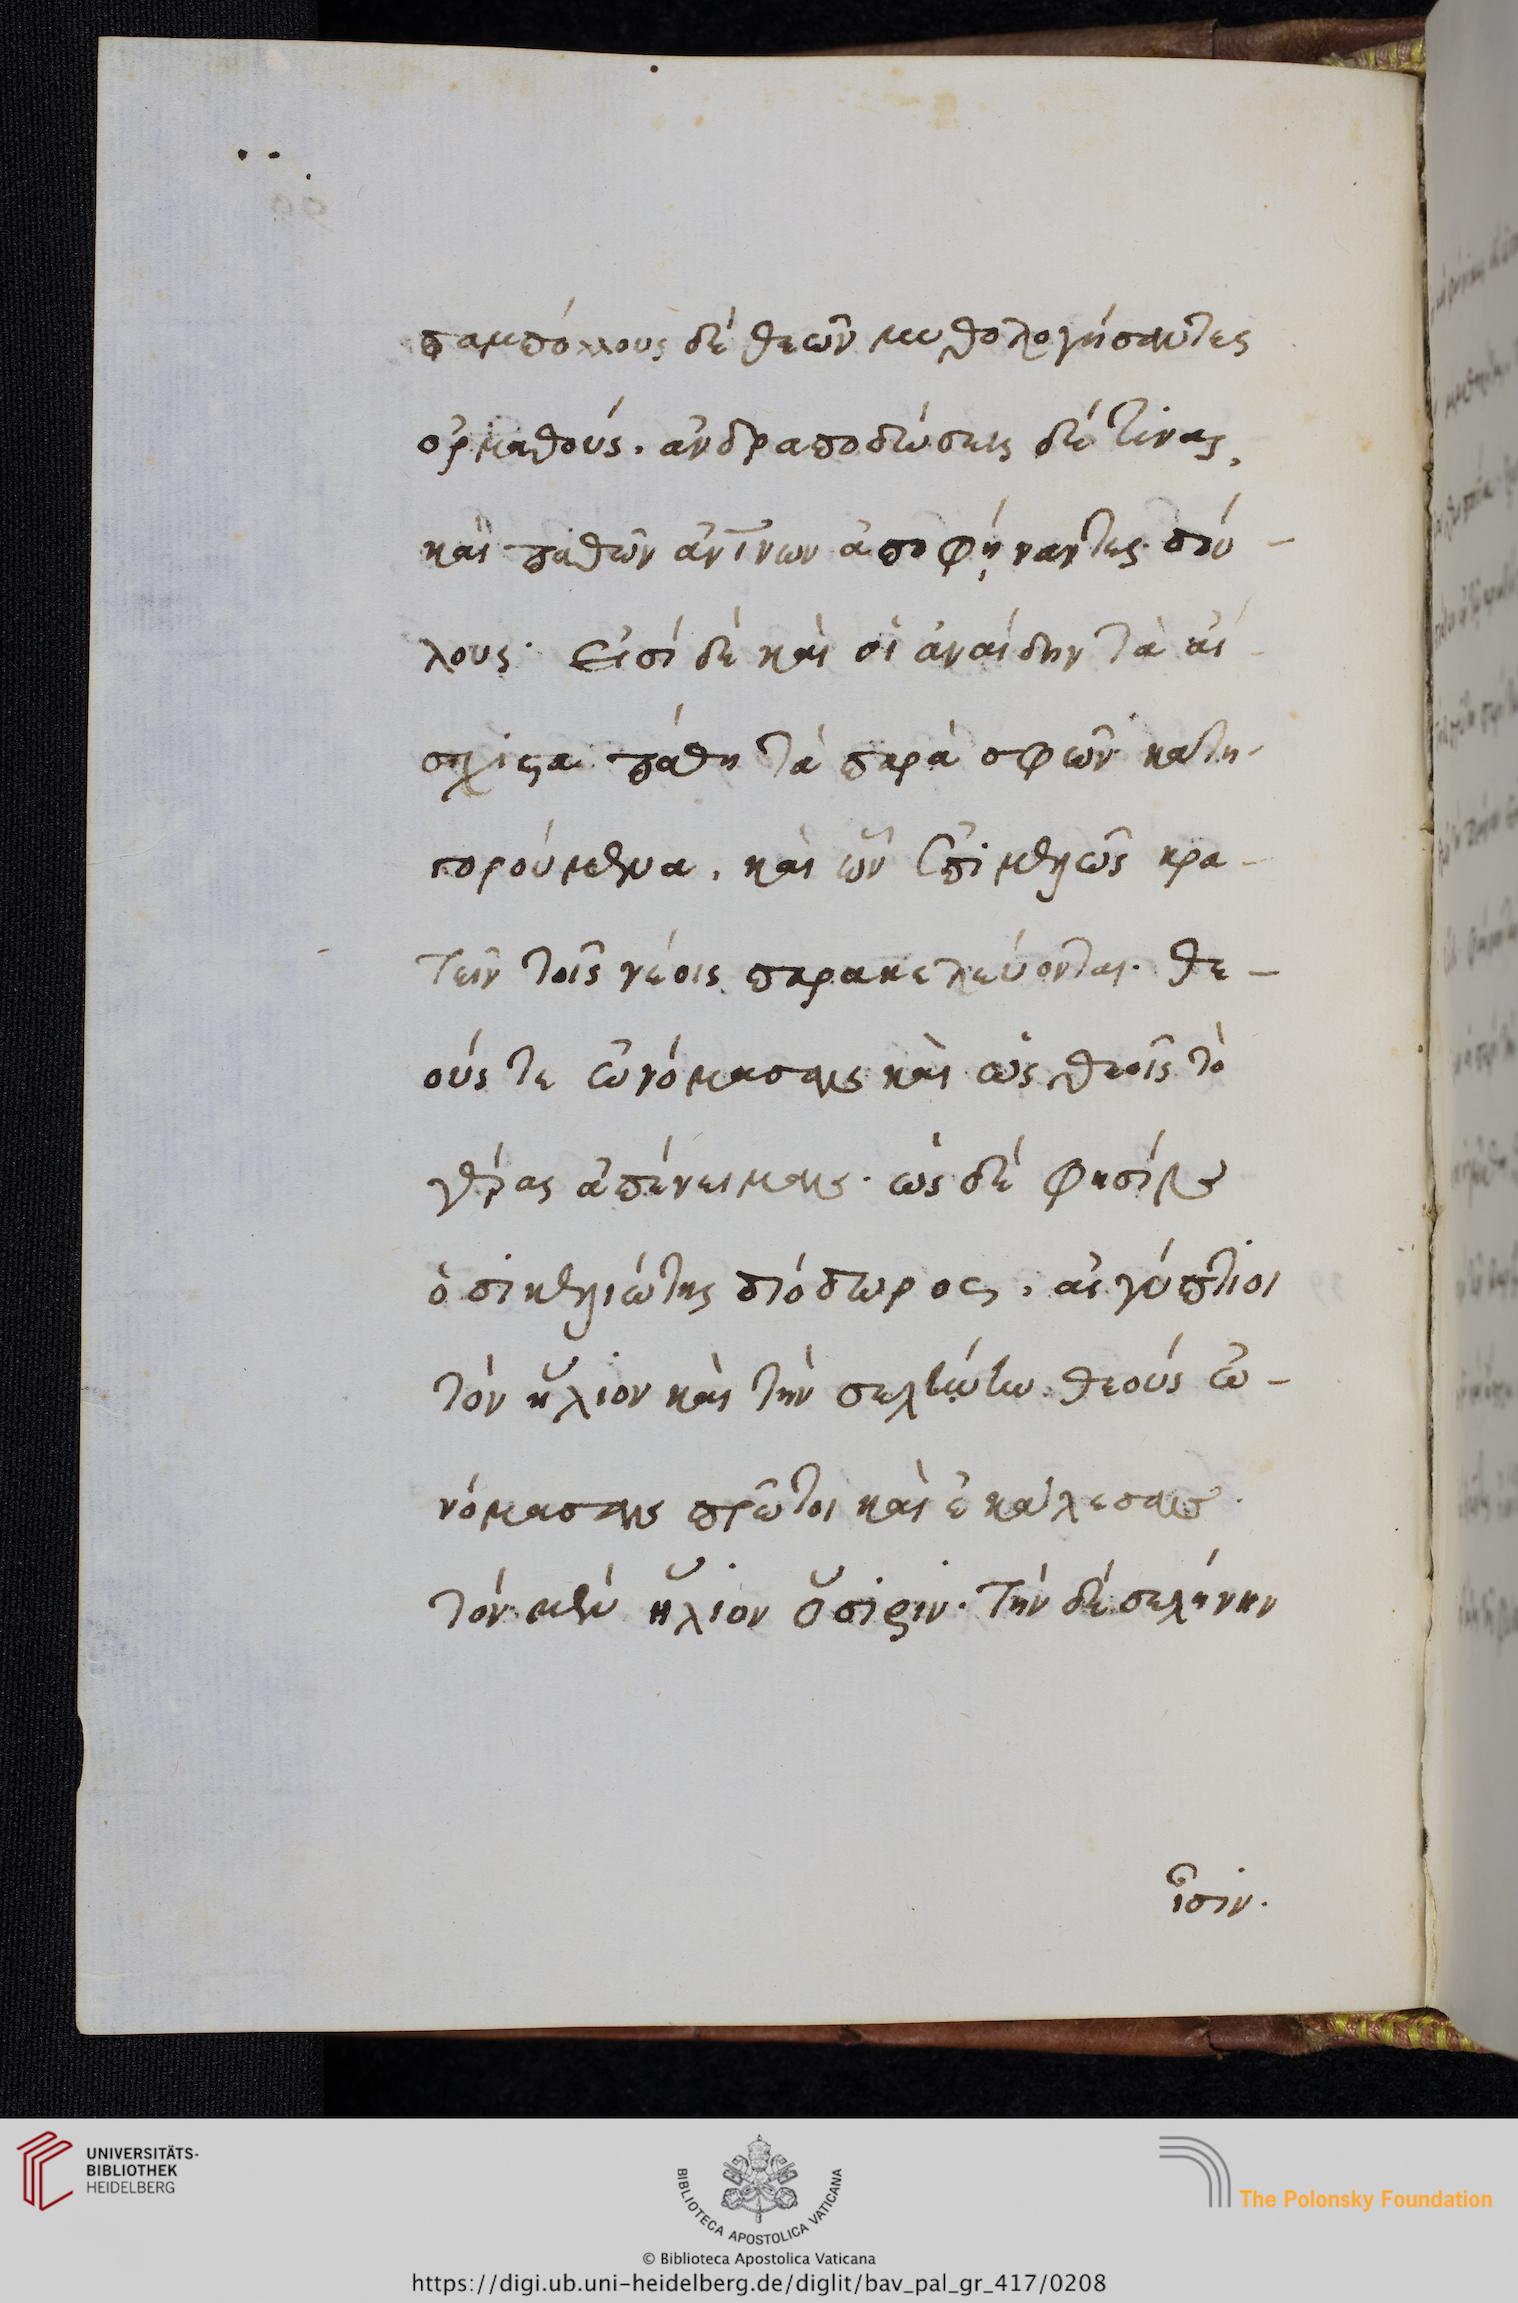 παμπόλλους δὲ θεῶν μυθολογήσαντες
ὁρμαθούς. ἀνδραποδώσεις δέ τινας,
καὶ παθῶν ἀντίνων ἀποφήναντες δού-
λους· Εἰσὶ δὲ καὶ οἱ ἀναίδην τὰ αἰ-
σχιστα πάθη τὰ παρὰ σφῶν κατη-
γορούμενα, καὶ ὧν ἐπιμελῶς κρα-
τεῖν τοῖς νέοις παρακελεύονται. θε-
ούς τε ὠνόμασαν καὶ ὡς θεοῖς τὸ
γέρας ἀπένειμαν. ὡς δέ φησὶν
ὁ σικελιώτης διόδωρος, αἰγύπτιοι
τὸν ἥλιον καὶ τὴν σελήνην θεοὺς ὠ-
νόμασαν πρῶτοι καὶ ἐκάλεσαν·
τὸν μὲν ἥλιον ὄσιριν. τὴν δὲ σελήνην
ἶσιν.
UNIVERSITÄTS-
BIBLIOTHEK
HEIDELBERG
BIBLIOTECA APOSTOLICA VATICANA
The Polonsky Foundation
© Biblioteca Apostolica Vaticana
https://digi.ub.uni-heidelberg.de/diglit/bav_pal_gr_417/0208